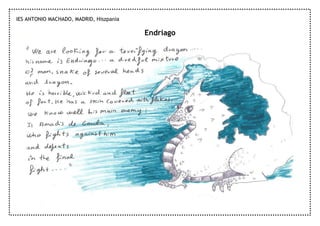 IES ANTONIO MACHADO, MADRID, Hiszpania
Endriago
" We are looking for a terrifying dragon ....
his name is Endriago ... a dredful mixture
of man, snake of several heads
and dragon.
He is horrible, wicked and fleet
of foot. He has a skin covered with
We know well his main enemy:
Is Amadis de Gaula,
who fights against him
and defeats
in the final
fight ...."